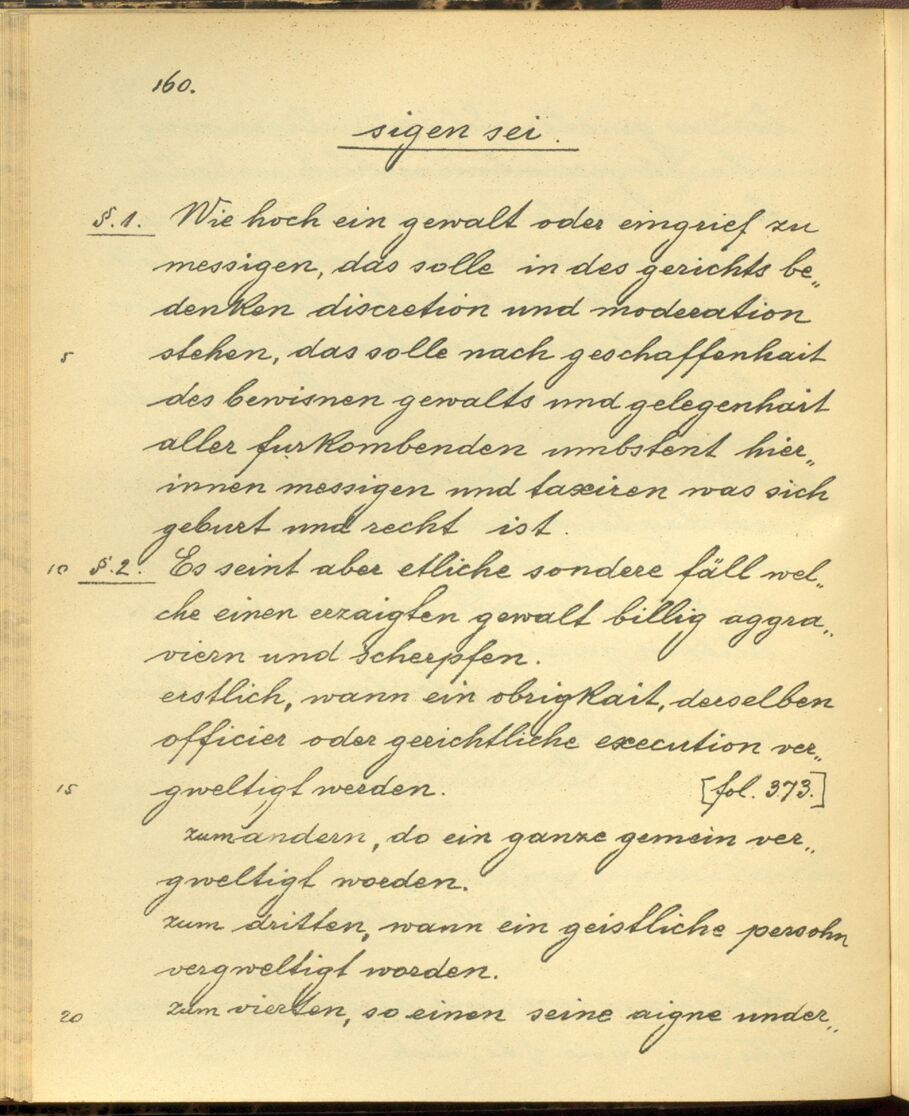 160.
sigen sei.
§. 1. Wie hoch ein gewalt oder eingrief zu
messigen, das solle in des gerichts be„
denken discretion und moderation
5 stehen, das solle nach geschaffenhait
des bewisnen gewalts und gelegenhait
aller furkombenden umbstent hier„
innen messigen und taxiren was sich
geburt und recht ist.
10 §. 2. Es seint aber etliche sondere fäll wel„
che einen erzaigten gewalt billig aggra„
viern und scherpfen.
erstlich, wann ein obrigkait, derselben
officier oder gerichtliche execution ver„
15 gweltigt werden. [fol. 373.]
zum andern, do ein ganze gemein ver„
gweltigt worden.
zum dritten, wann ein geistliche persohn
vergweltigt worden.
20 zum vierten, so einen seine aigne under„